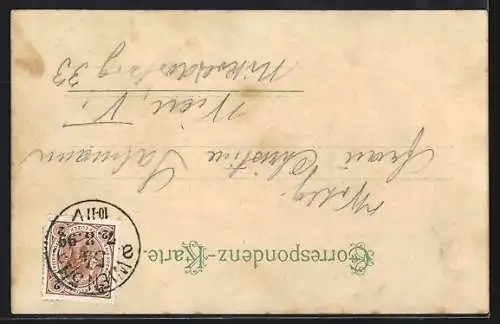 Correspondenz-Karte.
Wohlg.
Frau Christine Salmann
Wien, V.
Nikolsdorferg 33
WIEN
7. 12. 99
10-11 V
2